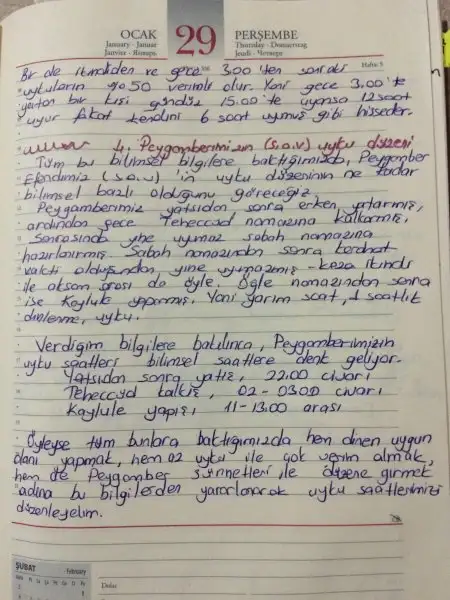 OCAK
January - Januar
Janvier - Январь
29
PERŞEMBE
Thursday - Donnerstag
Jeudi - Четверг
Hafta: 5
Bir de ikindiden ve gece 3.00'ten sonraki
uykuların %50 verimli olur. Yani gece 3.00'te
yatan bir kişi gündüz 15.00'te uyansa 12 saat
uyur fakat kendini 6 saat uyumuş gibi hisseder.
4. Peygamberimizin (s.a.v) uyku düzeni
Tüm bu bilimsel bilgilere baktığımızda, Peygamber
Efendimiz (s.a.v)'in uyku düzeninin ne kadar
bilimsel bazlı olduğunu göreceğiz.
Peygamberimiz yatsıdan sonra erken yatarmış,
ardından gece Teheccüd namazına kalkarmış,
sonrasında yine uyumaz sabah namazına
hazırlanırmış. Sabah namazından sonra kerahat
vakti olduğundan, yine uyumazmış - keza ikindi
ile akşam arası da öyle. Öğle namazından sonra
ise Kaylule yaparmış. Yani yarım saat, 1 saatlik
dinlenme, uyku.
Verdiğim bilgilere bakılınca, Peygamberimizin
uyku saatleri bilimsel saatlere denk geliyor.
Yatsıdan sonra yatış, 22:00 civarı
Teheccüd kalkış, 02 - 03:00 civarı
Kaylule yapış, 11 - 13:00 arası
Öyleyse tüm bunlara baktığımızda hem dinen uygun
olanı yapmak, hem az uyku ile çok verim almak,
hem de Peygamber sünnetleri ile düzene girmek
adına bu bilgilerden yararlanarak uyku saatlerimizi
düzenleyelim.
ŞUBAT - February
Notlar